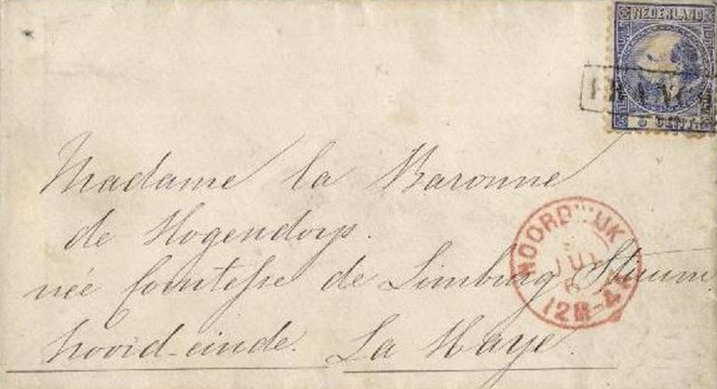 NEDERLAND
FRANCO
5 CENT.
Madame la Baronne
de Hogendorp.
née Comtesse de Limburg Stirum
Noord-einde. La Haye.
NOORDWIJK
JUL
12M-4A